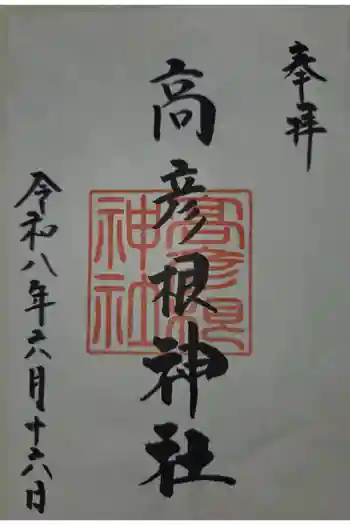 奉拝
高彦根神社
高彦根
神社
令和八年六月十六日